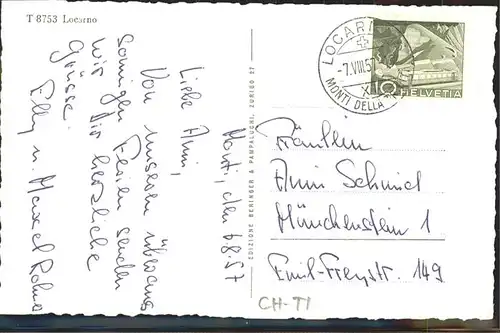 T 8753 Locarno
Monti, den 6.8.57
Liebe Anni,
Von unseren überaus
sonnigen Ferien senden
wir Dir herzliche
Grüsse.
Elly u. Marcel
EDIZIONE BERINGER & PAMPALUCHI, ZURIGO 27
LOCARNO
-7.VIII.57
MONTI DELLA
10 HELVETIA
Fräulein
Anni Schmid
Münchenstein 1
Emil-Freystr. 149
CH-TI